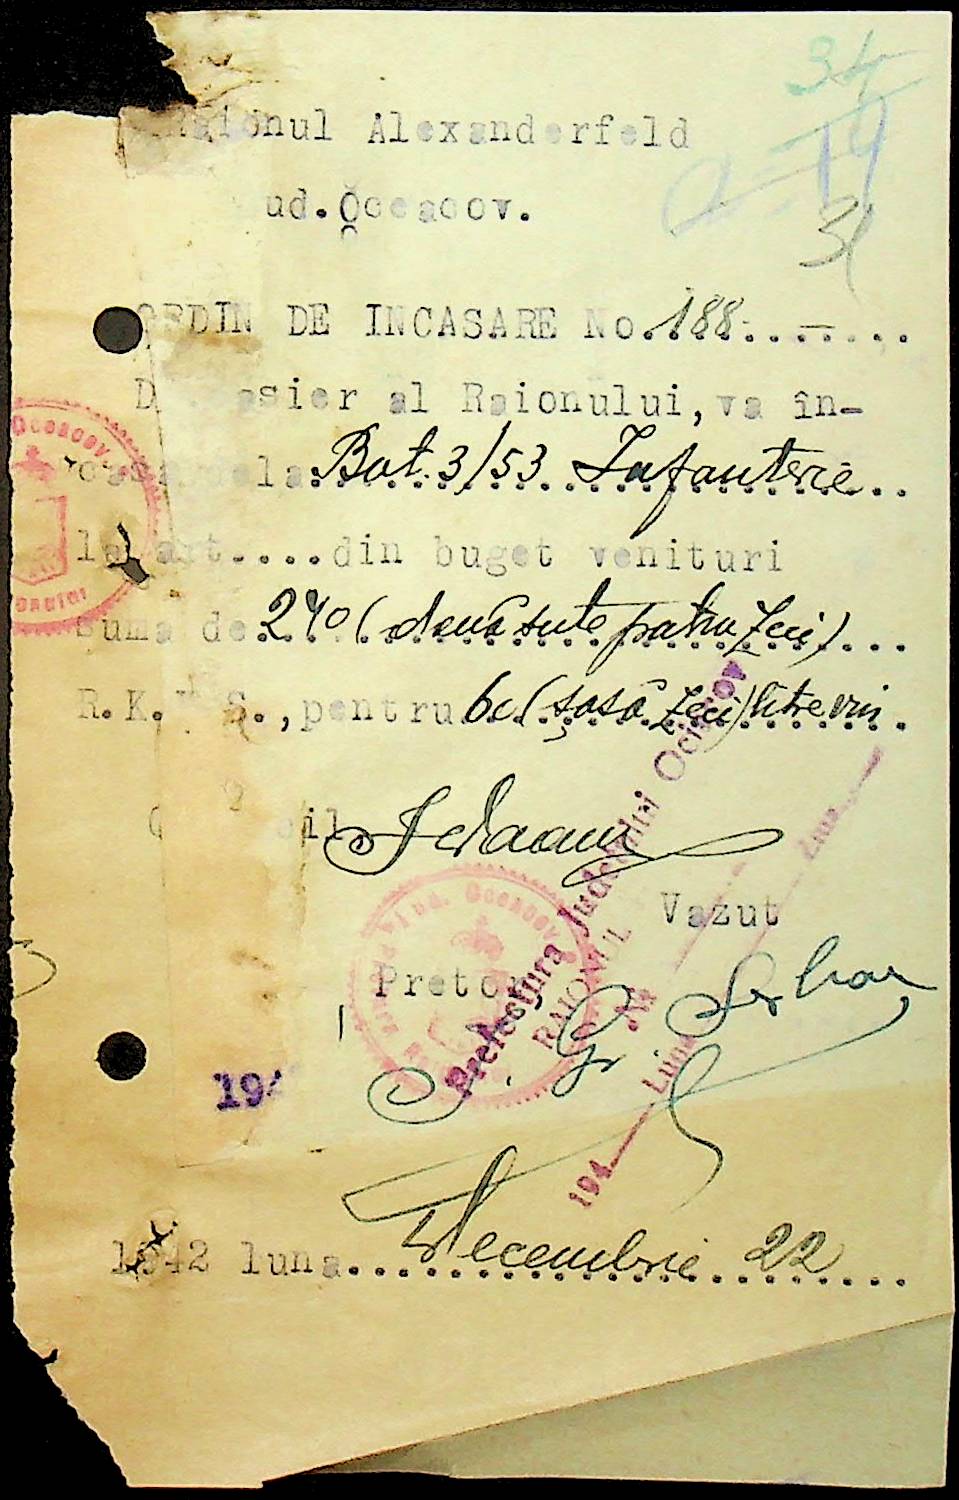 34
31
Raionul Alexanderfeld
ud. Oceacov.
ORDIN DE INCASARE No. 188.-
D. asier al Raionului, va în-
casa dela Bat. 3/53 Infanterie
la art.....din buget venituri
suma de 240 (două sute patru zeci)
R.K. S., pentru 60 (șasă zeci) litre vin
il
Vazut
Pretor
Prefectura Județului Oceacov
RAIONUL
No
194 Luna Ziua
194
1942 luna Decembrie 22